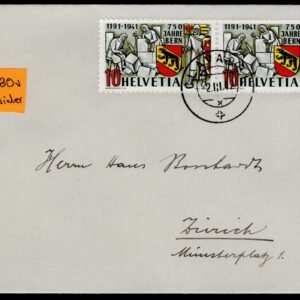 1191-1941 750 JAHRE BERN
10 HELVETIA
1191-1941 750 JAHRE BERN
10 HELVETIA
80v
Herrn Hans Bosshardt
Zürich
Münsterplatz 1.